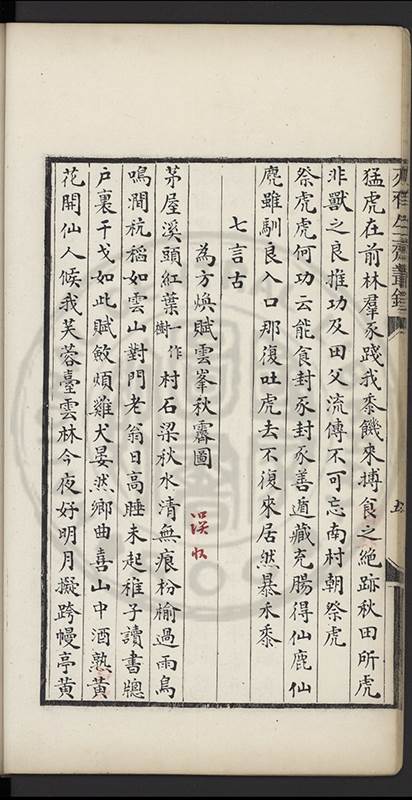 猛虎在前林羣豕踐我黍饑來搏食之絶跡秋田所虎
非獸之良推功及田父流傳不可忘南村朝祭虎
祭虎虎何功云能食封豕封豕善遁藏充腸得仙鹿仙
麂雖馴良入口那復吐虎去不復來居然暴禾黍
七言古
為方煥賦雲峯秋霽圖
茅屋溪頭紅葉一作樹村石梁秋水清無痕枌榆過雨鳥
鳴澗杭稻如雲山對門老翁日高睡未起稚子讀書牕
户裏干戈如此賦斂煩雞犬晏然鄉曲喜山中酒熟黄
花開仙人候我芙蓉臺雲林今夜好明月擬跨幔亭黄
誤收
五